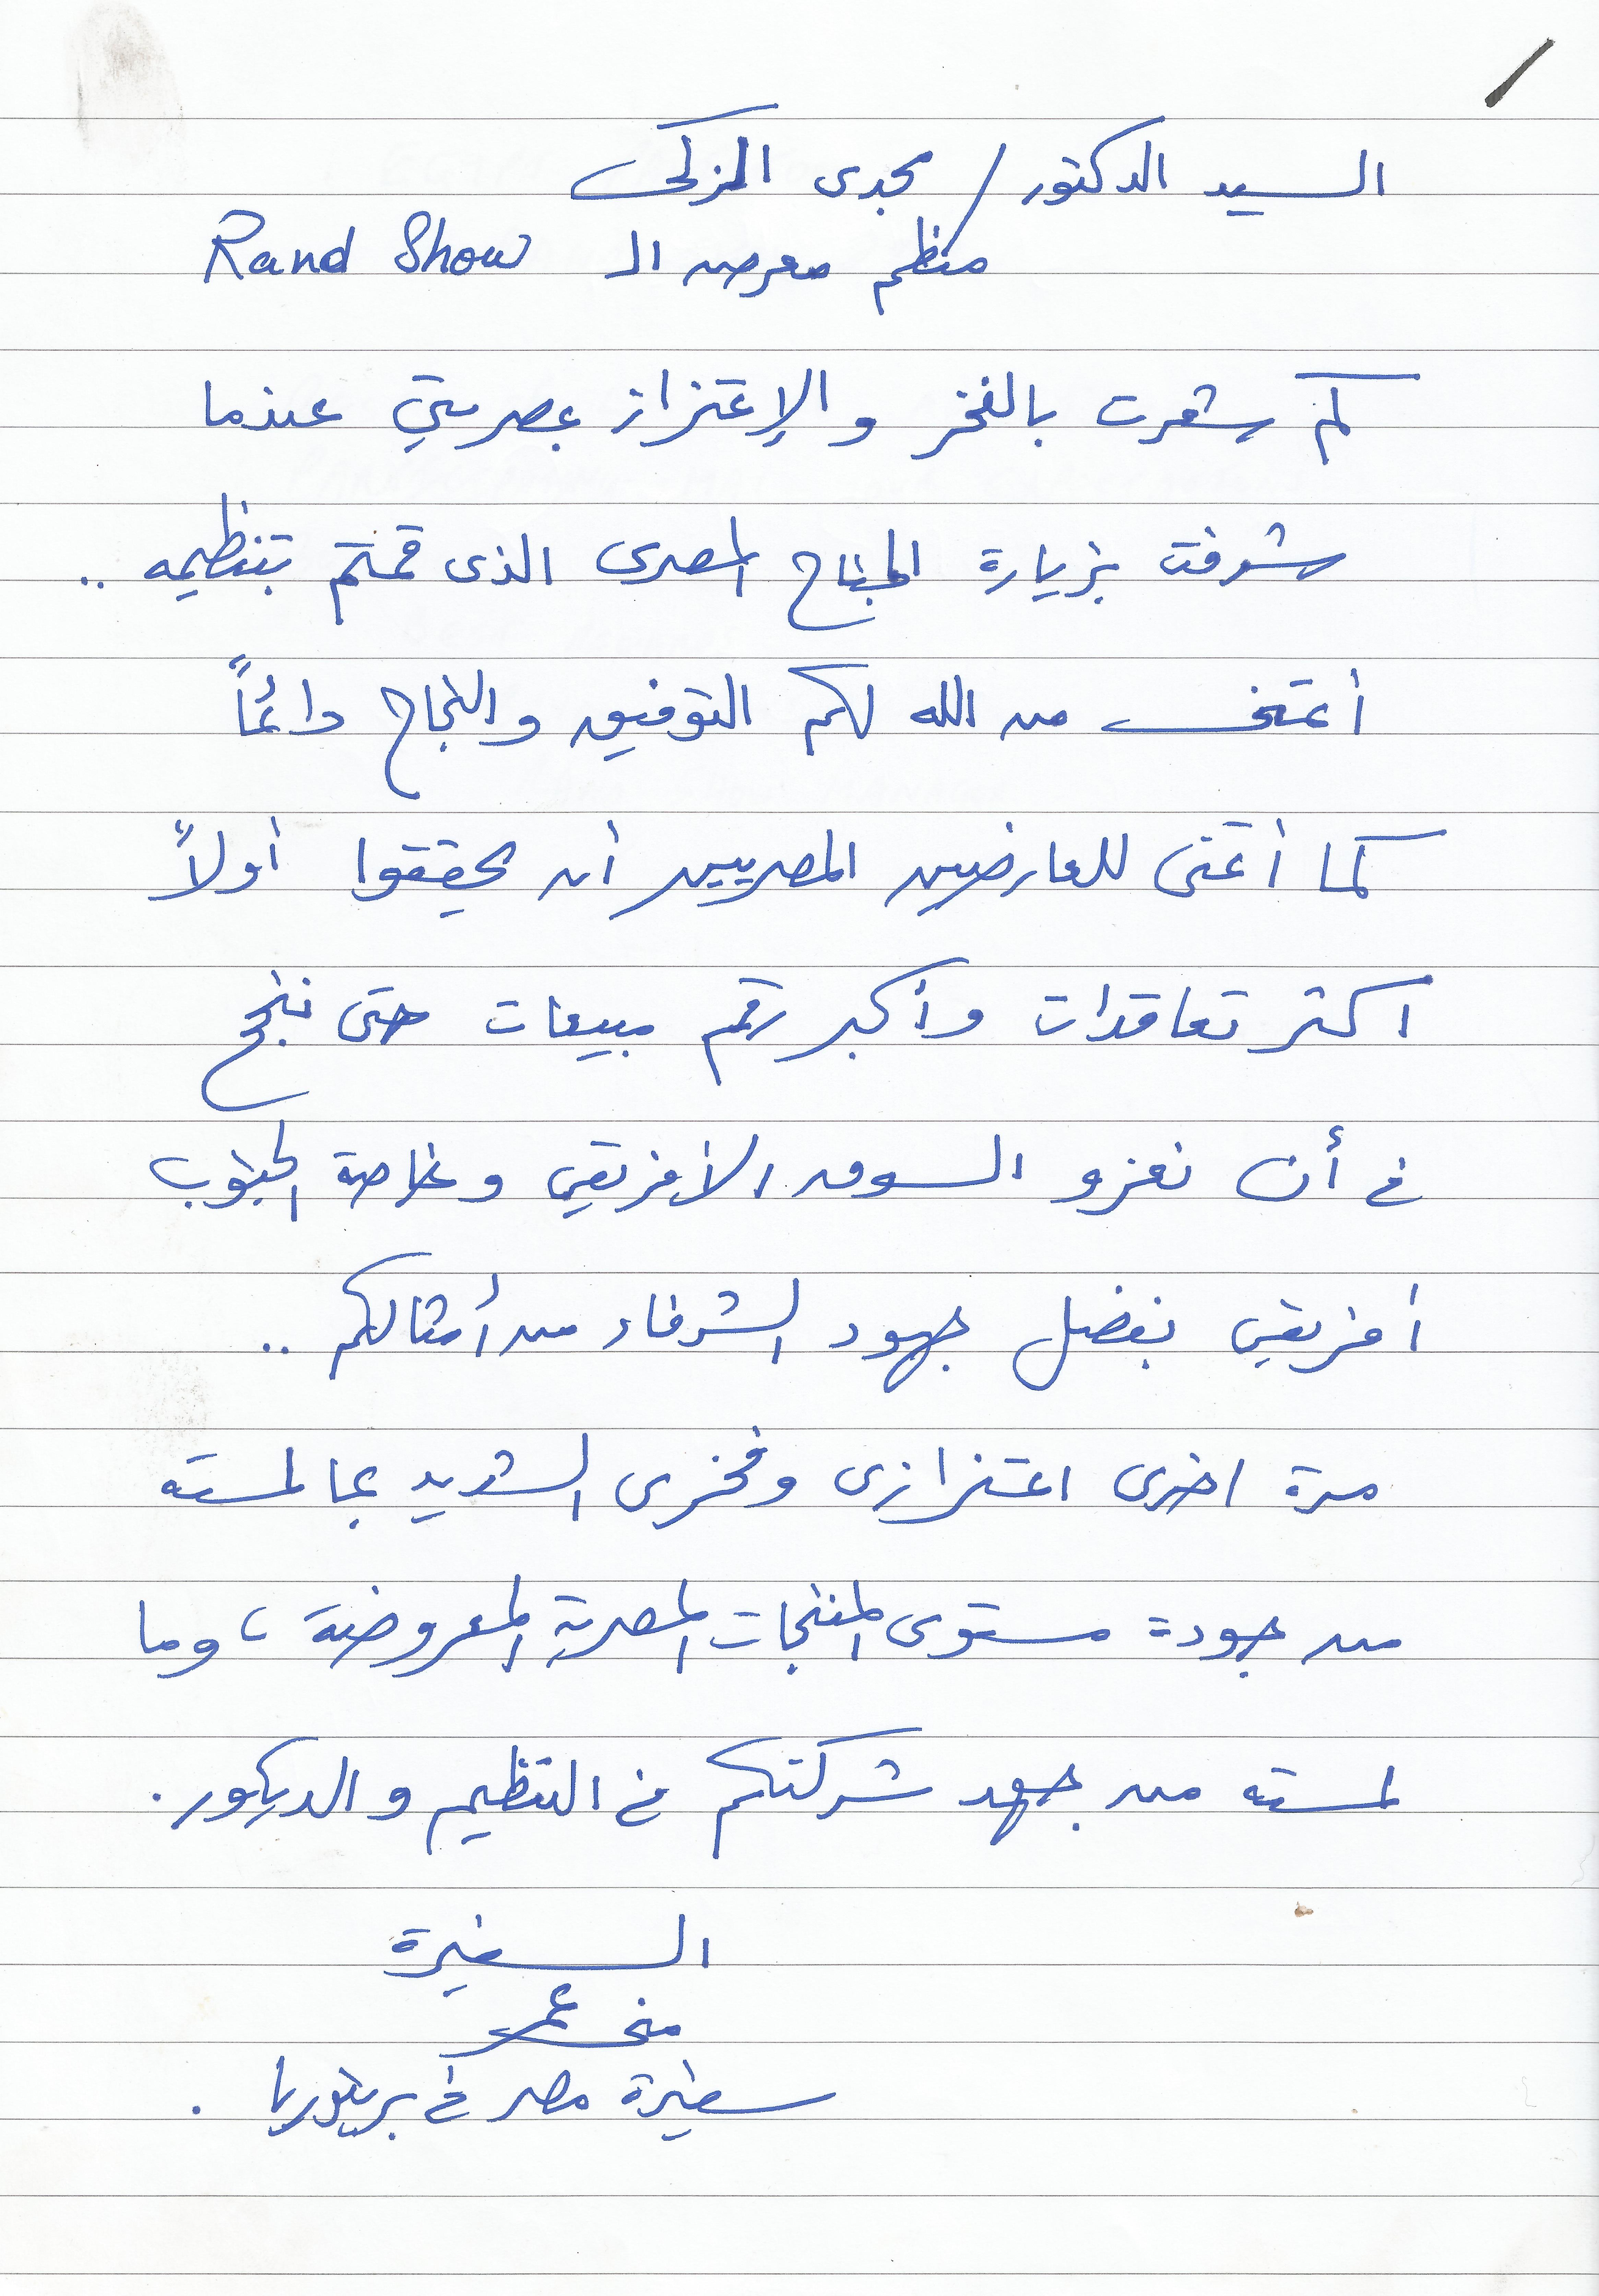 السيد الدكتور / مجدى المزكى
منظم معرض ال Rand Show
كم شعرت بالفخر والإعتزاز بمصريتي عندما
شرفت بزيارة الجناح المصرى الذى قمتم بتنظيمه ..
أتمنى من الله لكم التوفيق والنجاح دائماً
كما أتمنى للعارضين المصريين أن يحققوا أولاً
اكثر تعاقدات وأكبر رقم مبيعات حتى ننجح
فى أن نغزو السوق الأفريقي وخاصة الجنوب
أفريقي بفضل جهود الشرفاء من أمثالكم ..
مرة اخرى اعتزازى وفخرى الشديد بما لمسته
من جودة مستوى المنتجات المصرية المعروضة، وما
لمسته من جهد شركتكم فى التنظيم والديكور .
السفيرة
منى عمر
سفيرة مصر فى بريتوريا .